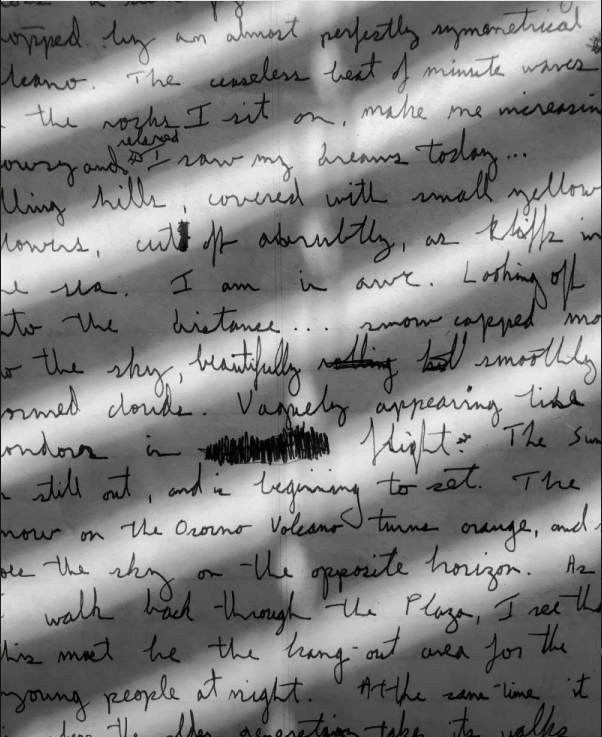 opped by an almost perfectly symmetrical
lcano. The ceaseless beat of minute waves
the rocks I sit on, make me increasin
relaxed
owsy and I saw my dreams today...
lling hills, covered with small yellow
lowers, cut off abruptly, as cliffs in
e sea. I am in awe. Looking off
nto the distance... snow capped mo
o the sky, beautifully rolling hill smoothly
ormed clouds. Vaguely appearing like
ondors in flight. The Sun
still out, and is beginning to set. The
now on the Osorno Volcano turns orange, and
oes the sky on the opposite horizon. As
I walk back through the Plaza, I see tha
his must be the hang-out area for the
young people at night. At the same time it
the older generation takes its walks